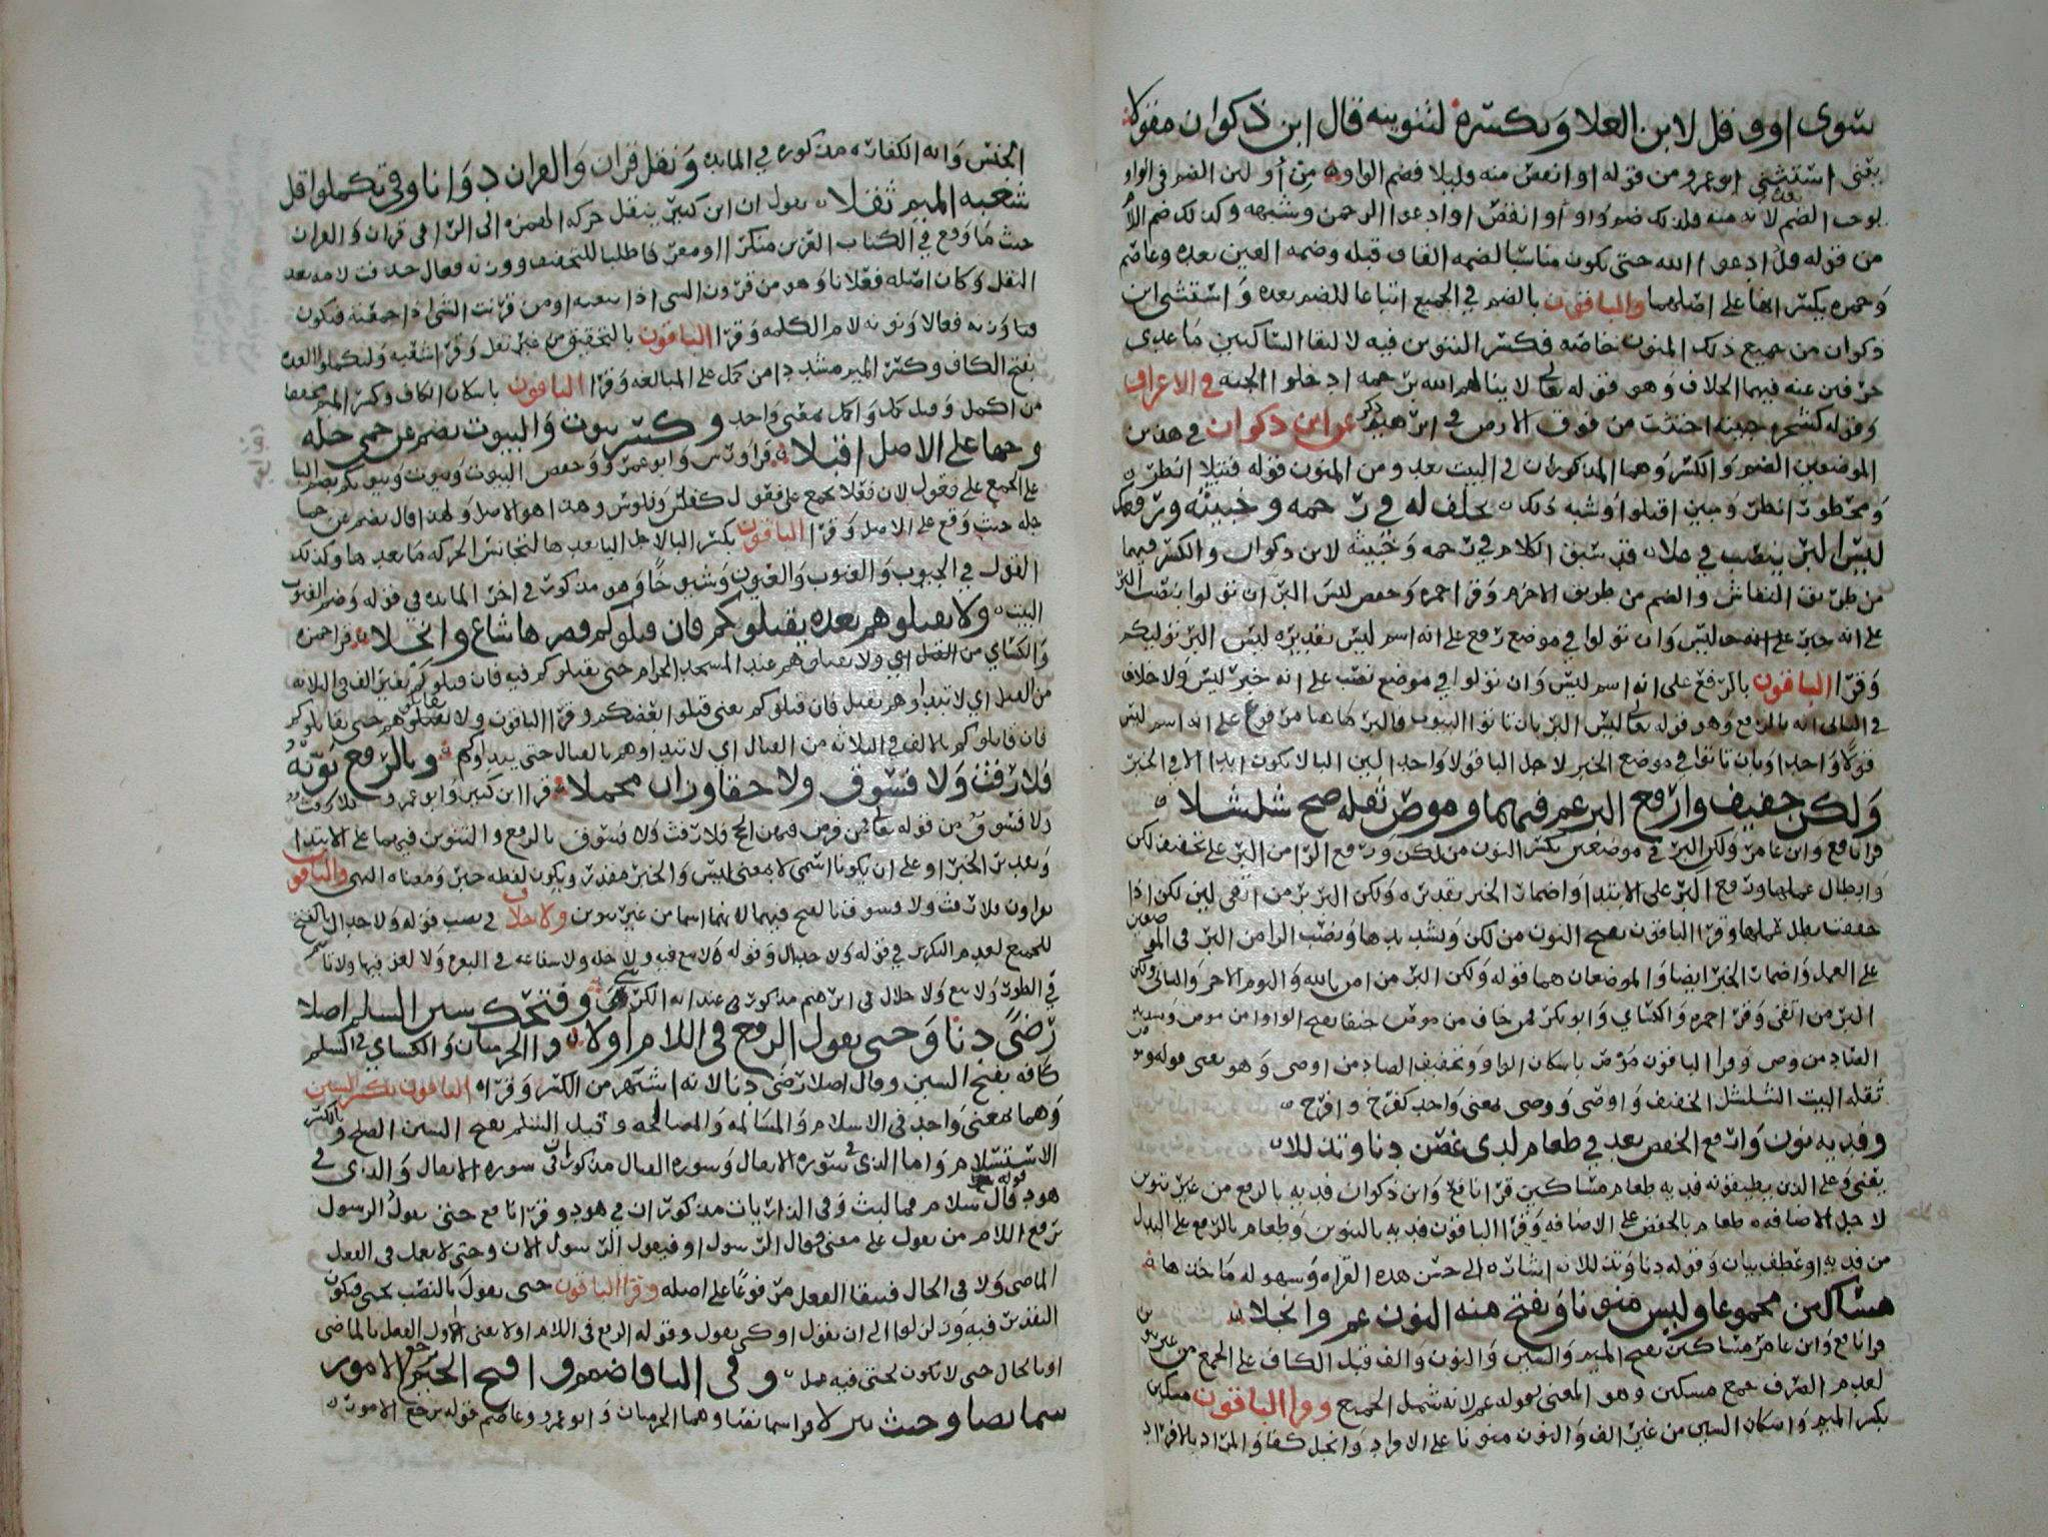 سوى او وقل لابن العلا وبكسره لتنوينه قال ابن ذكوان مقولا
يعني استثنى ابو عمرو من قوله او انقص منه قليلا فضم الواو من أو لان الضم في الواو
من قوله قل ادعوا الله حتى يكون مناسبا لضمه القاف قبله وضمه العين بعده وعاصم
وحمزه بكسر الها على اصلهما والباقون بالضم في الجميع اتباعا للضم بعده واستثنى ابن
ذكوان من جميع ذلك المنون خاصه فكسر التنوين فيه لالتقا الساكنين ما عدى
حرفين عنه فيهما الخلاف وهو قوله تعالى لا ينالهم الله برحمه ادخلوا الجنه في الاعراف
وقوله كشجره خبيثه اجتثت من فوق الارض في ابرهيم ذكر عن ابن ذكوان في هذين
الموضعين الضم والكسر وهما المذكوران في البيت بعد ومن المنون قوله فتيلا انظر
ومحظورا انظر ومبين اقتلوا وشبه ذلك بخلف له في رحمه وخبيثه ورفعك
ليس البر ينصب في علا قد سبق الكلام في رحمه وخبيثه لابن ذكوان والكسر فيهما
من طريق النقاش والضم من طريق الاخرم وقرا حمزه وحفص ليس البر ان تولوا بنصب البر
على انه خبر ليس وان تولوا في موضع رفع على انه اسم ليس تقديره ليس البر توليكم
وقرا الباقون بالرفع على انه اسم ليس وان تولوا في موضع نصب على انه خبر ليس ولا خلاف
في الثاني انه بالرفع وهو قوله تعالى ليس البر بان تاتوا البيوت فالبر هاهنا مرفوع على انه اسم ليس
قولا واحدا وبان تاتوا في موضع الخبر لاجل البا قولا واحدا لان البا لا تكون ابدا الا في الخبر
ولكن خفيف وارفع البر عم فيهما وموص ثقله صح شلشلا
قرا نافع وابن عامر ولكن البر في موضعين بكسر النون من لكن ورفع الرا من البر على تخفيف لكن
وابطال عملها ورفع البر على الابتدا واضمار الخبر تقديره ولكن البر بر من اتقى لان لكن اذا
خففت بطل عملها وقرا الباقون بفتح النون من لكن وتشديدها ونصب الرا من البر في الموضعين
على العمل واضمار الخبر ايضا والموضعان هما قوله ولكن البر من امن بالله واليوم الاخر والثاني ولكن
البر من اتقى وقرا حمزه والكسائي وابو بكر فمن خاف من موص جنفا بفتح الواو من موص وتشديد
الصاد من وصى وقرا الباقون موص باسكان الواو وتخفيف الصاد من اوصى وهو يعني قوله وموص
ثقله البيت الشلشل الخفيف واوصى ووصى بمعنى واحد كفرح وافرح
وفديه نون وارفع الخفض بعد في طعام لدى غصن دنا وتذللا
يعني وعلى الذين يطيقونه فديه طعام مساكين قرا نافع وابن ذكوان فديه بالرفع من غير تنوين
لاجل الاضافه طعام بالخفض على الاضافه وقرا الباقون فديه بالتنوين وطعام بالرفع على البدل
من فديه او عطف بيان وقوله دنا وتذللا اشاره الى حسن هذه القراه وسهوله ماخذها
مساكين مجموعا وليس منونا ويفتح منه النون عم وانجلا
قرا نافع وابن عامر مساكين بفتح الميم والسين والنون والف قبل الكاف على الجمع من غير تنوين
لعدم الصرف جمع مسكين وهو المعني بقوله عم لانه شمل الجميع وقرا الباقون مسكين
بكسر الميم واسكان السين من غير الف والنون منونا على الافراد وانجل كفا والمراد بالافراد
الجنس وانه الكفاره مذكوره في المايده ونقل قران والقران دوانا وفي تكملوا قل
شعبه الميم ثقلا يقول ان ابن كثير ينقل حركه الهمزه الى الرا في قران والقران
حيث ما وقع في الكتاب العزيز منكرا او معرفا طلبا للتخفيف ووزنه فعال حذفت لامه بعد
النقل وكان اصله فعلانا وهو من قرون الشي اذا تتبعه او من قرنت الشي اذا جمعته فيكون
فتاوزنه فعالا ونونه لام الكلمه وقرا الباقون بالتحقيق من غير نقل وقرا شعبه ولتكملوا العده
بفتح الكاف وكسر الميم مشددا من كمل على المبالغه وقرا الباقون باسكان الكاف وكسر الميم مخففا
من اكمل وقيل كمل واكمل بمعنى واحد وكسر بيوت والبيوت يضم عن حمى جله
وجها على الاصل اقبلا قرا ورش وابو عمرو وحفص البيوت وبيوت وبيوتكم بضم البا
على الجمع على فعول لان فعلا يجمع على فعول كفلس وفلوس وهذا هو الاصل ولهذا قال يضم عن حمى
جله حيث وقع على الاصل وقرا الباقون بكسر البا لاجل اليا بعدها لتجانس الحركه ما بعدها وكذلك
القول في الجيوب والغيوب والعيون وشيوخا وهو مذكور في اخر المايده في قوله وضم الغيوب
البيت ولا تقتلوهم بعده يقتلوكم فان قتلوكم قصرها شاع وانجلا قرا حمزه
والكسائي من القتل اي ولا تقتلوهم عند المسجد الحرام حتى يقتلوكم فيه فان قتلوكم بغير الف في الثلاثه
من القتل اي لا تبدوهم بقتل فان قتلوكم يعني قتلوا بعضكم وقرا الباقون ولا تقاتلوهم حتى يقاتلوكم
فان قاتلوكم بالالف في الثلاثه من القتال اي لا تبداوهم بالقتال حتى يبداوكم وبالرفع نونه
فلا رفث ولا فسوق ولا حقا وزان محملا قرا ابن كثير وابو عمرو فلا رفث
ولا فسوق من قوله تعالى فمن فرض فيهن الحج فلا رفث ولا فسوق بالرفع والتنوين فيهما على الابتدا
وتقدير الخبر او على ان يكونا اسمي لا بمعنى ليس والخبر مقدر ويكون لفظه خبر ومعناه النهي والباقون
يقراون فلا رفث ولا فسوق بالفتح فيهما لانهما اسما من غير تنوين ولا خلاف في نصب قوله ولا جدال بالفتح
للجميع لعدم التكرير في قوله ولا جدال وقوله لا بيع فيه ولا خله ولا شفاعه في البقره ولا لغو فيها ولا تاثيم
في الطور ولا بيع ولا خلال في ابرهيم مذكور في عند ايه الكرسي وفتحك سين السلم اصلا
رضى دنا وحتى يقول الرفع في اللام اولا قرا الحرميان والكسائي في السلم
كافه بفتح السين وقال اصلا رضى دنا لانه اشهر من الكسر وقراه الباقون بكسر السين
وهما بمعنى واحد في الاسلام والمسالمه والمصالحه وقيل السلم بفتح السين الصلح وبالكسر
الاستسلام واما الذي في سوره الانفال وسوره القتال مذكوران في سوره الانفال والذي في
هود قوله قال سلام فما لبث وفي الذاريات مذكوران في هود وقرا نافع حتى يقول الرسول
برفع اللام من يقول على معنى وقال الرسول او فيقول الرسول الان وحتى لا تعمل في الفعل
الماضي ولا في الحال فيبقا الفعل مرفوعا على اصله وقرا الباقون حتى يقول بالنصب بحتى فيكون
التقدير فيه وزلزلوا الى ان يقول او كي يقول وقوله الرفع في اللام اولا يعني اول الفعل بالماضي
او بالحال حتى لا يكون لحتى فيه عمل وفي التا فاضمم وافتح الجيم ترجع الامور
سما نصا وحيث تنزلا قرا سما نصا وهما الحرميان وابو عمرو وعاصم قوله ترجع الامور